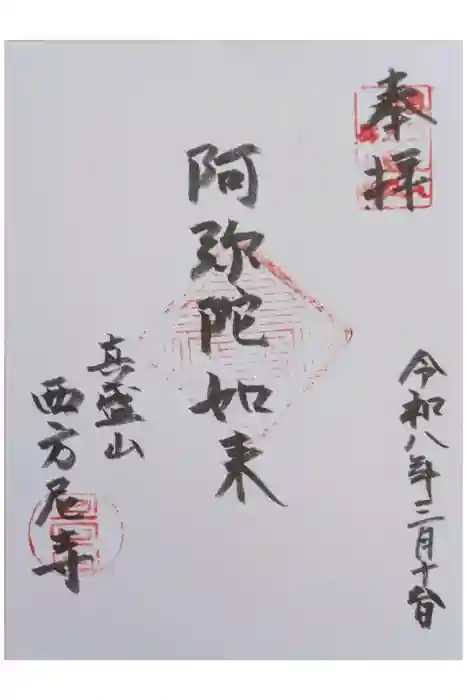 奉拝
阿弥陀如来
真盛山
西方尼寺
令和八年三月十台